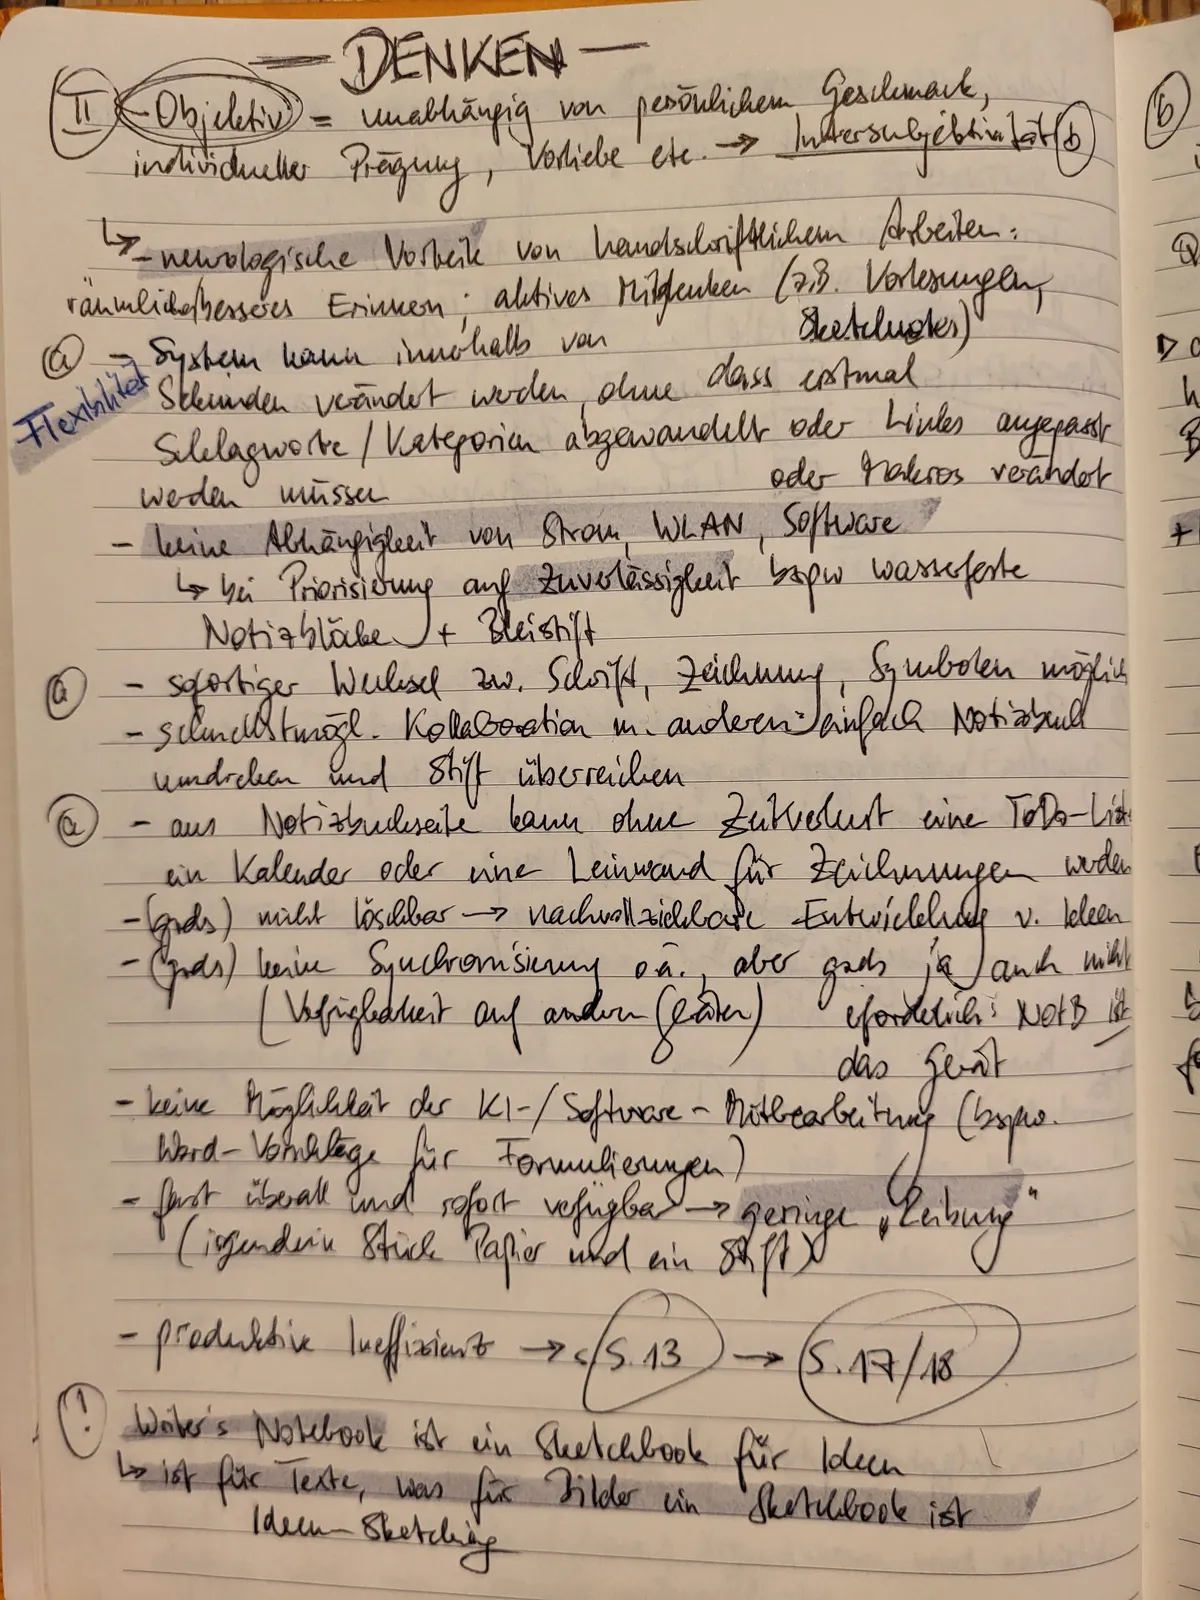 — DENKEN —
II - Objektiv = unabhängig von persönlichem Geschmack,
individueller Prägung, Vorliebe etc. → Intersubjektivität (b)
↳ - neurologische Vorteile von handschriftlichem Arbeiten:
räumlich/besseres Erinnern; aktives Mitdenken (z.B. Vorlesungen,
Sketchnotes)
(a) - System kann innerhalb von
Flexibilität
Sekunden verändert werden, ohne dass erstmal
Schlagworte/Kategorien abgewandelt oder Links angepasst
werden müssen oder Makros verändert
- keine Abhängigkeit von Strom, WLAN, Software
↳ bei Priorisierung auf Zuverlässigkeit bspw wasserfeste
Notizblöcke + Bleistift
(a) - sofortiger Wechsel zw. Schrift, Zeichnung, Symbolen möglich
- schnellstmögl. Kollaboration m. anderen: einfach Notizbuch
umdrehen und Stift überreichen
(a) - aus Notizbuchseite kann ohne Zeitverlust eine ToDo-Liste
ein Kalender oder eine Leinwand für Zeichnungen werden
- (grds) nicht löschbar → nachvollziehbare Entwicklung v. Ideen
- (grds) keine Synchronisierung o.ä., aber grds ja auch nicht
(Verfügbarkeit auf anderen Geräten) erforderlich: NotB ist
das Gerät
- keine Möglichkeit der KI-/Software-Mitbearbeitung (bspw.
Word-Vorschläge für Formulierungen)
- fast überall und sofort verfügbar → geringe „Reibung"
(irgendein Stück Papier und ein Stift)
- produktive Ineffizienz → S. 13 → S. 17/18
! Writer's Notebook ist ein Sketchbook für Ideen
↳ ist für Texte, was für Bilder ein Sketchbook ist
Ideen-Sketching